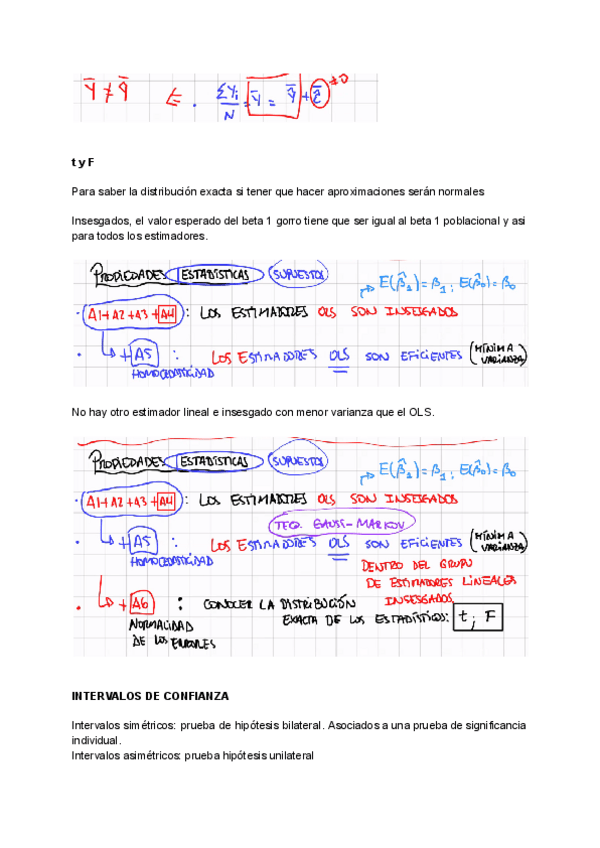 Ȳ ≠ Ŷ̄ ΣYᵢ/N = Ȳ = Ŷ̄ + ε̂̄ ≠0
t y F
Para saber la distribución exacta si tener que hacer aproximaciones serán normales
Insesgados, el valor esperado del beta 1 gorro tiene que ser igual al beta 1 poblacional y asi
para todos los estimadores.
PROPIEDADES ESTADÍSTICAS SUPUESTOS
→ E(β̂₁) = β₁ ; E(β̂₀) = β₀
· A1+A2+A3+A4 : LOS ESTIMADORES OLS SON INSESGADOS
· +A5 : LOS ESTIMADORES OLS SON EFICIENTES (MÍNIMA VARIANZA)
HOMOCEDASTICIDAD
No hay otro estimador lineal e insesgado con menor varianza que el OLS.
PROPIEDADES ESTADÍSTICAS SUPUESTOS
→ E(β̂₁) = β₁ ; E(β̂₀) = β₀
· A1+A2+A3+A4 : LOS ESTIMADORES OLS SON INSESGADOS
TEO. GAUSS-MARKOV
· +A5 : LOS ESTIMADORES OLS SON EFICIENTES (MÍNIMA VARIANZA)
HOMOCEDASTICIDAD
DENTRO DEL GRUPO
DE ESTIMADORES LINEALES
INSESGADOS
· +A6 : CONOCER LA DISTRIBUCIÓN
NORMALIDAD EXACTA DE LOS ESTADÍSTICOS: t ; F
DE LOS ERRORES
INTERVALOS DE CONFIANZA
Intervalos simétricos: prueba de hipótesis bilateral. Asociados a una prueba de significancia
individual.
Intervalos asimétricos: prueba hipótesis unilateral